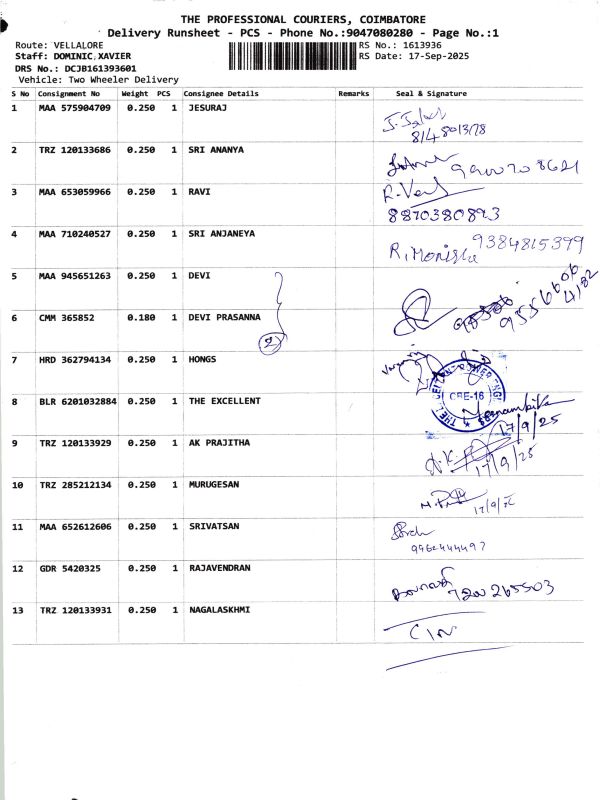 THE PROFESSIONAL COURIERS, COIMBATORE
Delivery Runsheet - PCS - Phone No.:9047080280 - Page No.:1
Route: VELLALORE RS No.: 1613936
Staff: DOMINIC,XAVIER RS Date: 17-Sep-2025
DRS No.: DCJB161393601
Vehicle: Two Wheeler Delivery
S No Consignment No Weight PCS Consignee Details Remarks Seal & Signature
1 MAA 575904709 0.250 1 JESURAJ
2 TRZ 120133686 0.250 1 SRI ANANYA
3 MAA 653059966 0.250 1 RAVI
8870380893
4 MAA 710240527 0.250 1 SRI ANJANEYA
R. Monisha 9384815399
5 MAA 945651263 0.250 1 DEVI
6 CMM 365852 0.180 1 DEVI PRASANNA
2
7 HRD 362794134 0.250 1 HONGS
CBE-16
8 BLR 6201032884 0.250 1 THE EXCELLENT
17/9/25
9 TRZ 120133929 0.250 1 AK PRAJITHA
17/9/25
10 TRZ 285212134 0.250 1 MURUGESAN
11 MAA 652612606 0.250 1 SRIVATSAN
12 GDR 5420325 0.250 1 RAJAVENDRAN
7200265503
13 TRZ 120133931 0.250 1 NAGALASKHMI